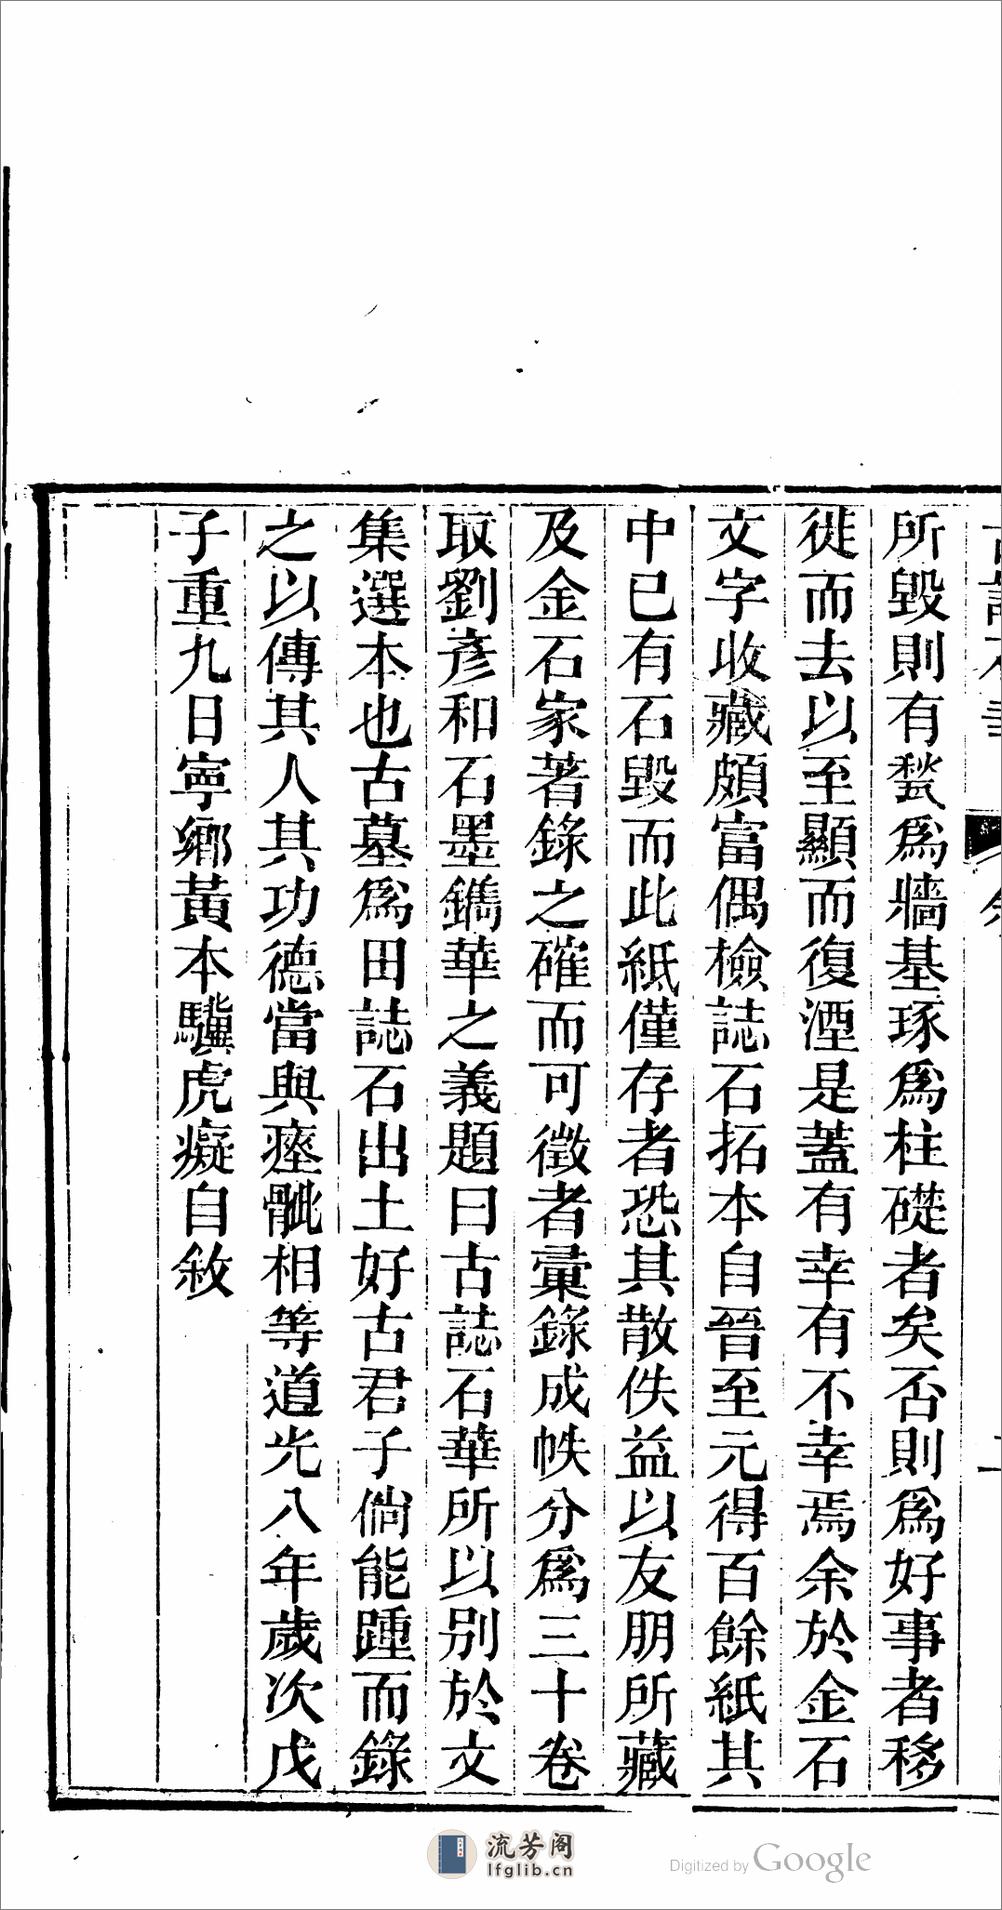 所毀則有甃爲牆基琢爲柱礎者矣否則爲好事者移
徙而去以至顯而復湮是蓋有幸有不幸焉余於金石
文字收藏頗富偶檢誌石拓本自晉至元得百餘紙其
中已有石毀而此紙僅存者恐其散佚益以友朋所藏
及金石家著錄之確而可徵者彙錄成帙分爲三十卷
取劉彥和石墨鐫華之義題曰古誌石華所以別於文
集選本也古墓爲田誌石出土好古君子倘能踵而錄
之以傳其人其功德當與瘞骴相等道光八年歲次戊
子重九日寧鄉黃本驥虎癡自敘
流芳阁
lfglib.cn
Digitized by Google